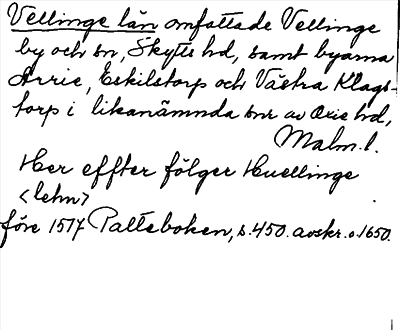 Vellinge län omfattade Vellinge
by och sn, Skytts hd, samt byarna
Arrie, Eskilstorp och Västra Klags-
torp i likanämnda snr av Oxie hd,
Malm.l.
Her effter fölger Huellinge
<lehn>
före 1517 Palteboken, s.450. avskr.o.1650.